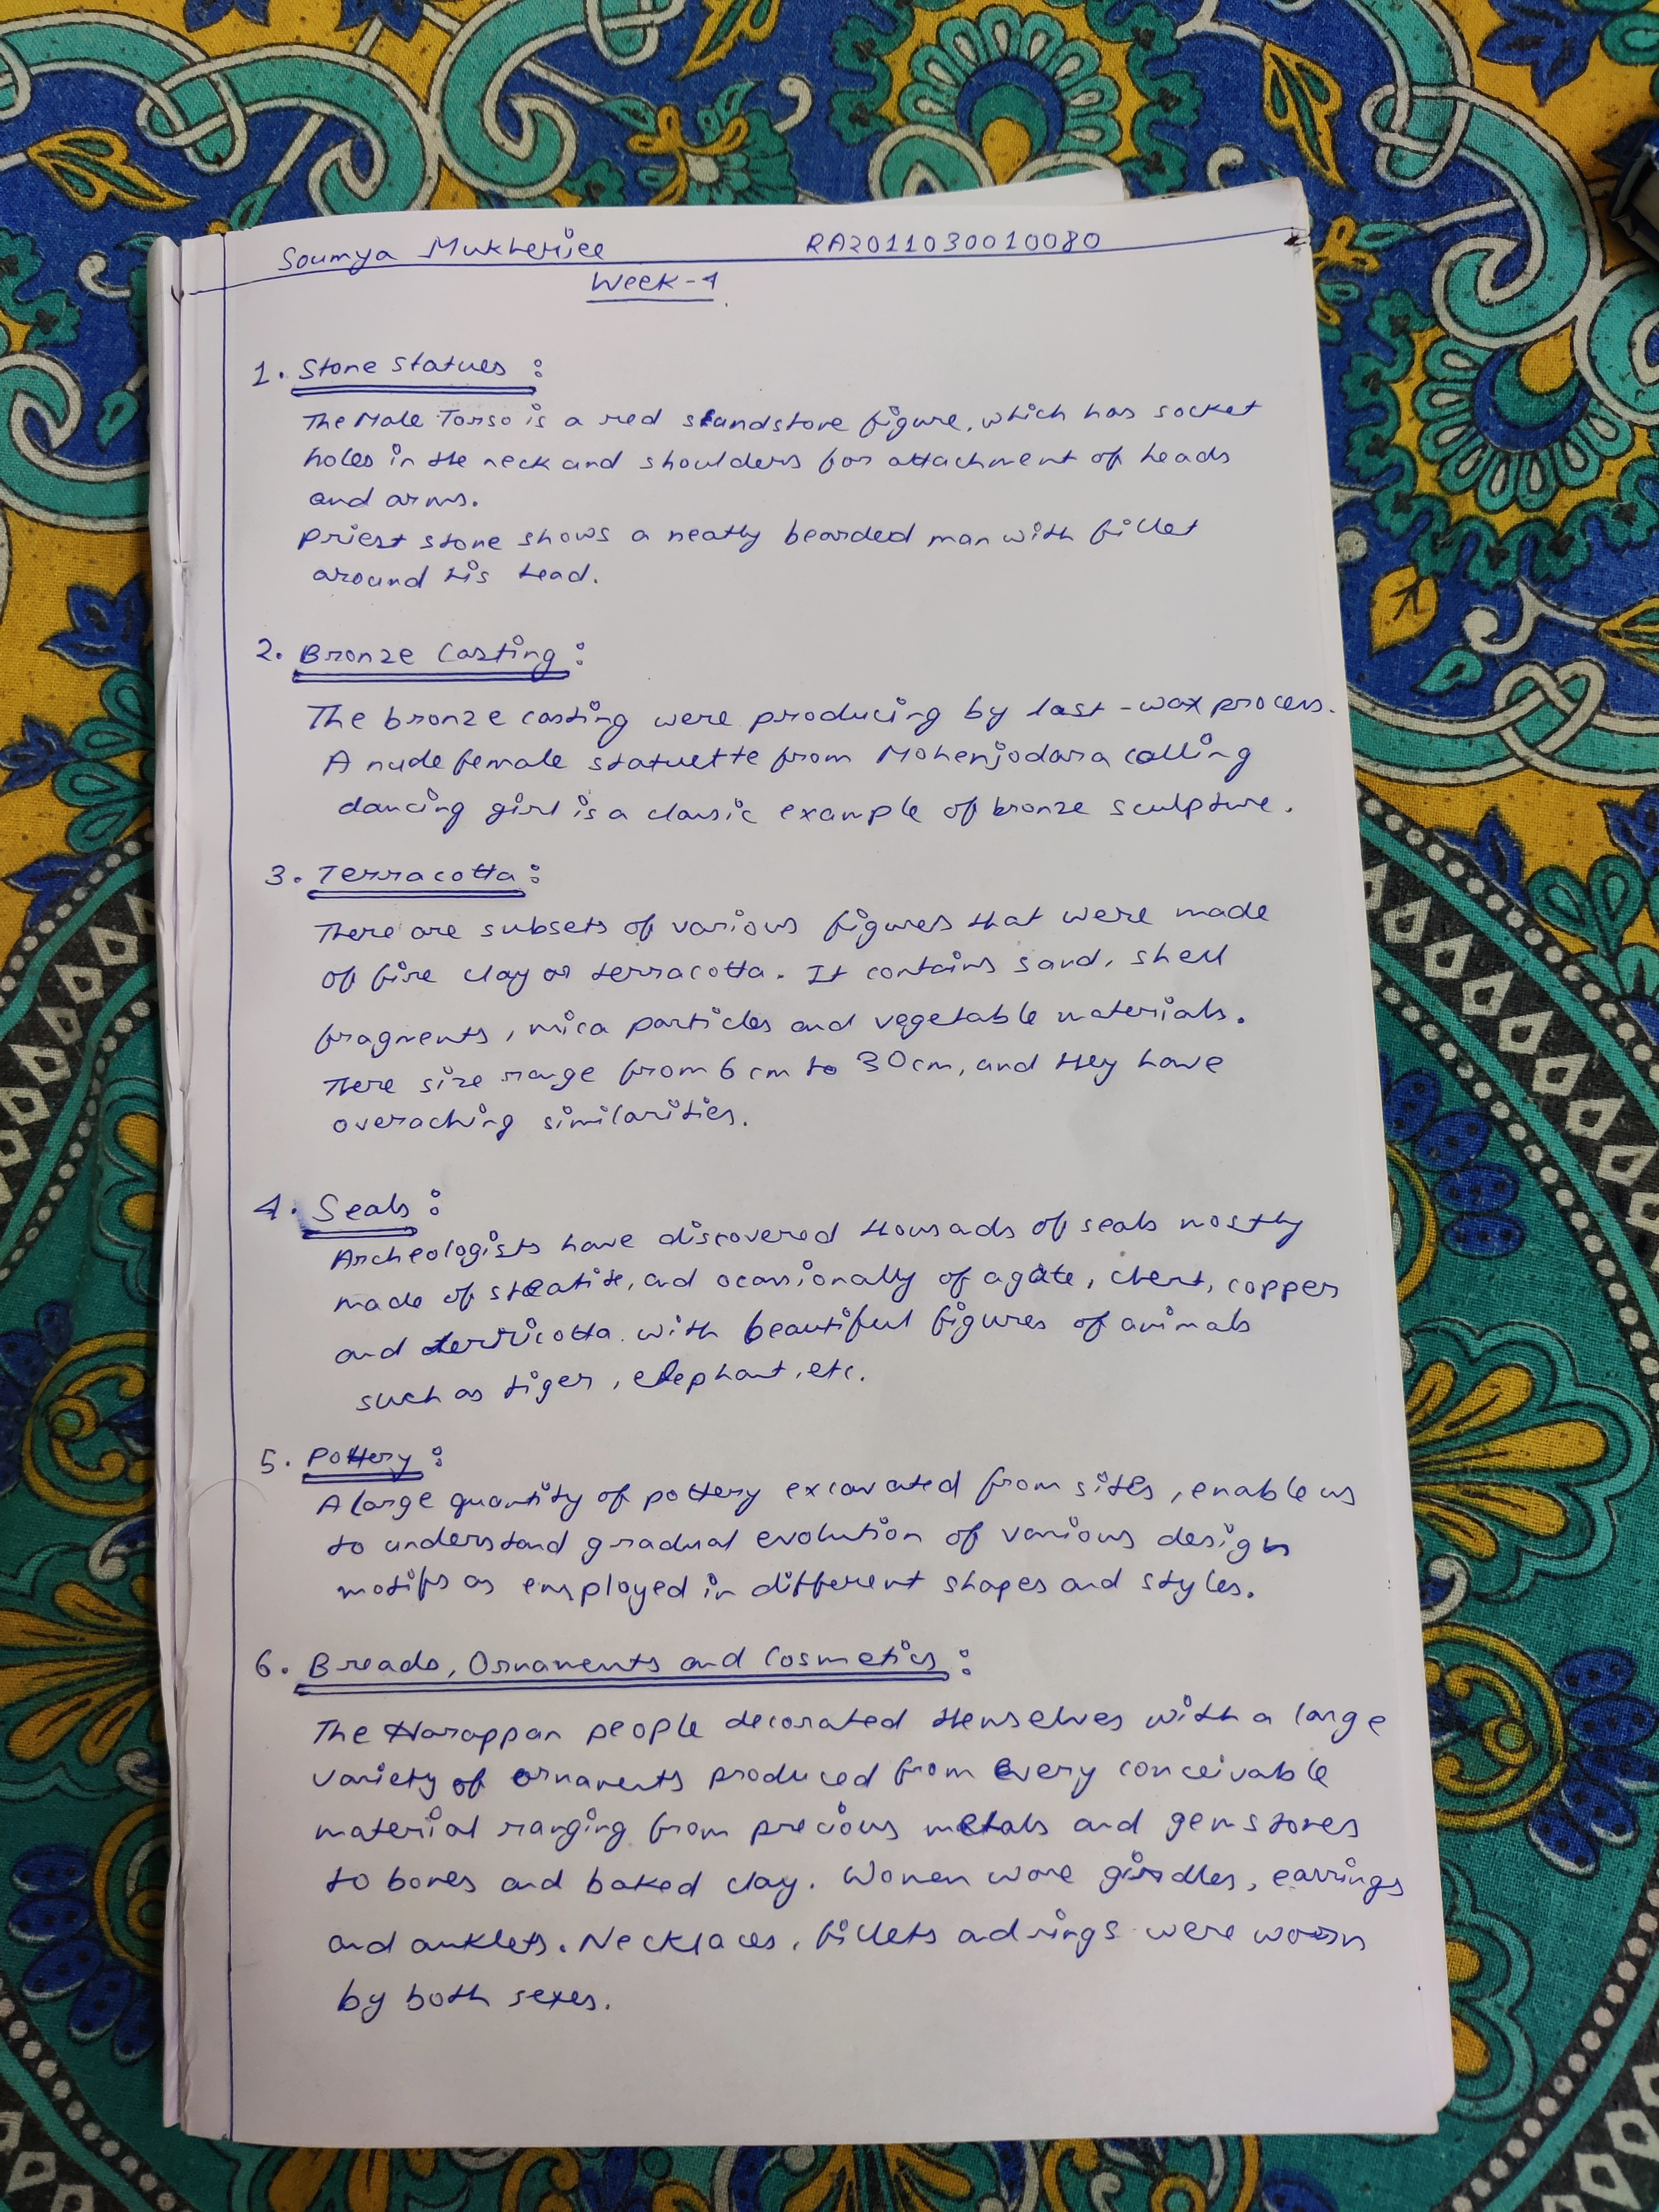 Soumya Mukherjee RA2011030010080
Week-4
1. Stone statues :
The Male Torso is a red standstone figure, which has socket
holes in the neck and shoulders for attachment of heads
and arms.
Priest stone shows a neatly bearded man with fillet
around his head.
2. Bronze Casting :
The bronze casting were producing by last-wax process.
A nude female statuette from Mohenjodara calling
dancing girl is a classic example of bronze sculpture.
3. Terracotta :
There are subsets of various figures that were made
of fire clay or terracotta. It contains sand, shell
fragments, mica particles and vegetable materials.
There size range from 6 cm to 30cm, and they have
overaching similarities.
4. Seals :
Archeologists have discovered thousads of seals mostly
made of steatite, and ocassionally of agate, chert, copper
and terricotta with beautiful figures of animals
such as tiger, elephant, etc.
5. Pottery :
A large quantity of pottery excavated from sites, enable us
to understand gradual evolution of various design
motifs as employed in different shapes and styles.
6. Breads, Ornaments and Cosmetics :
The Harappan people decorated themselves with a large
variety of ornaments produced from every conceivable
material ranging from precious metals and gemstones
to bones and baked clay. Women wore girdles, earrings
and anklets. Necklaces, fillets and rings were worn
by both sexes.